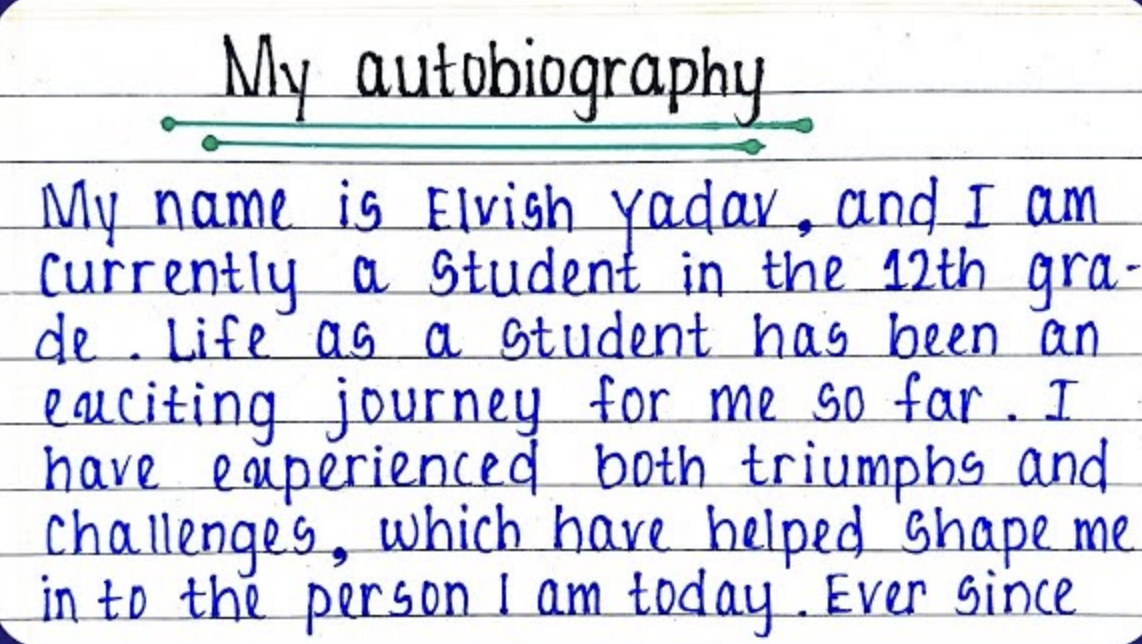 My autobiography
My name is Elvish Yadav, and I am
currently a student in the 12th gra-
de. Life as a student has been an
exciting journey for me so far. I
have experienced both triumphs and
challenges, which have helped shape me
in to the person I am today. Ever since